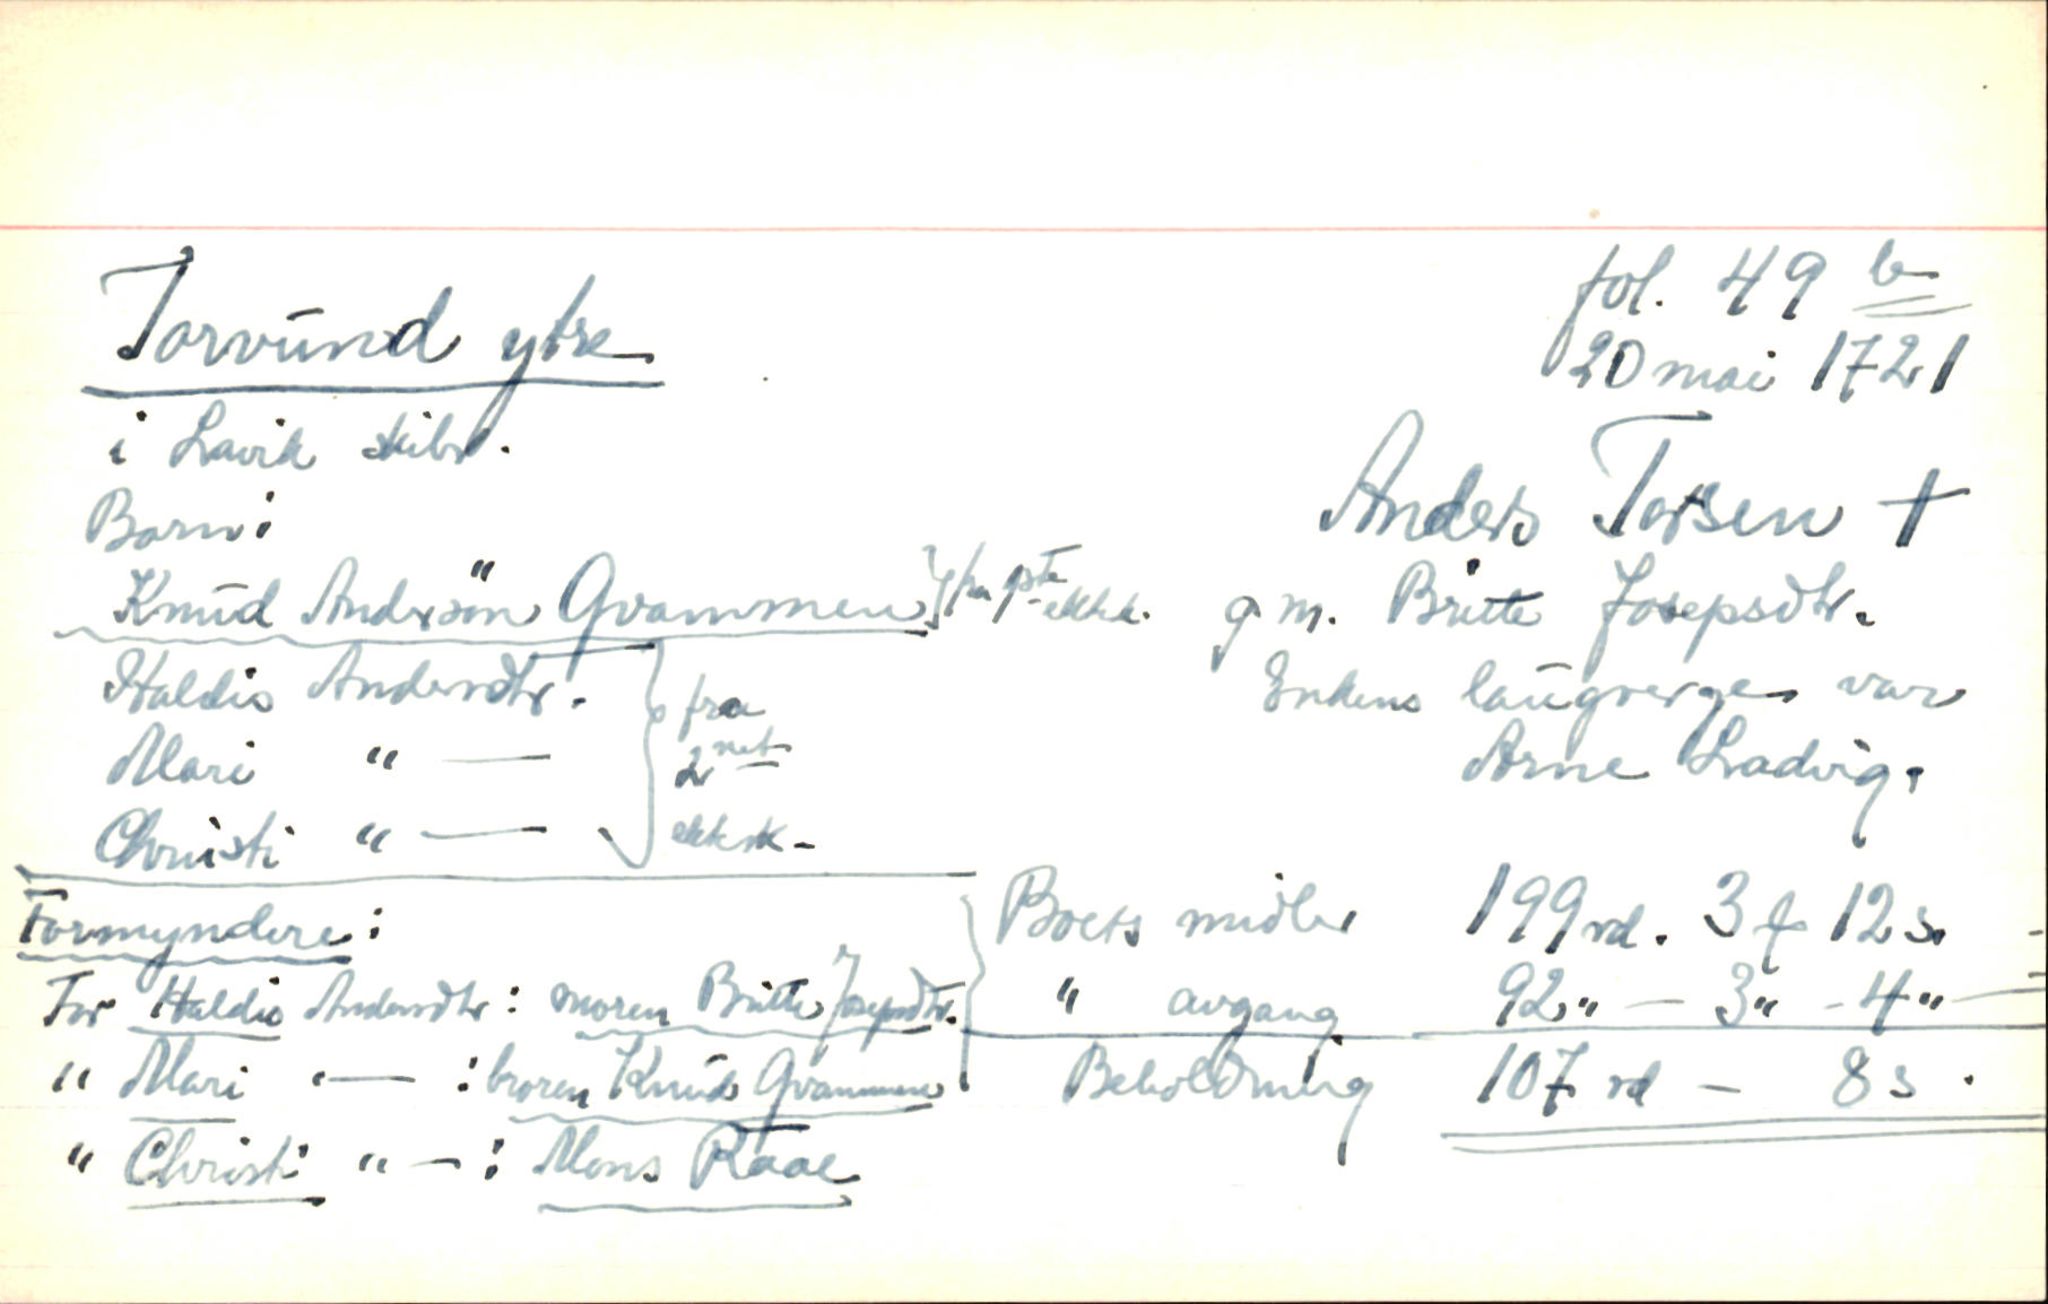 Torvund ytre
fol. 49 b
20 mai 1721
i Lavik skibr.
Anders Torsen +
Born:
Knud Anderson Qvammen } fra 1ste ektsk.
g. m. Britte Josepsdtr.
Haldis Andersdtr.
Mari " —
Christi " —
} fra
2net
ektsk.
Enkens laugverge var
Arne Ladvig.
Formyndere:
For Haldis Andersdtr: moren Britte Josepsdtr.
" Mari " — : broren Knud Qvammen
" Christi " — : Mons Raae
Boets midler 199 rd. 3 f 12 s.
" avgang 92 " — 3 " - 4 " —
Beholdning 107 rd — 8 s.